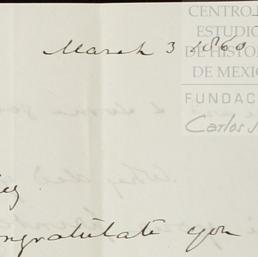 CENTRO
ESTUDIO
DE HISTOR
DE MÉXIC
FUNDAC
Carlos S
March 3 1860
ongratulate you